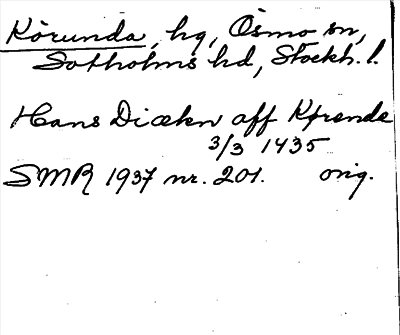 Körunda, hg, Ösmo sn,
Sotholms hd, Stockh. l.
Hans Diækn aff Kþrende
3/3 1435
SMR 1937 nr. 201. orig.